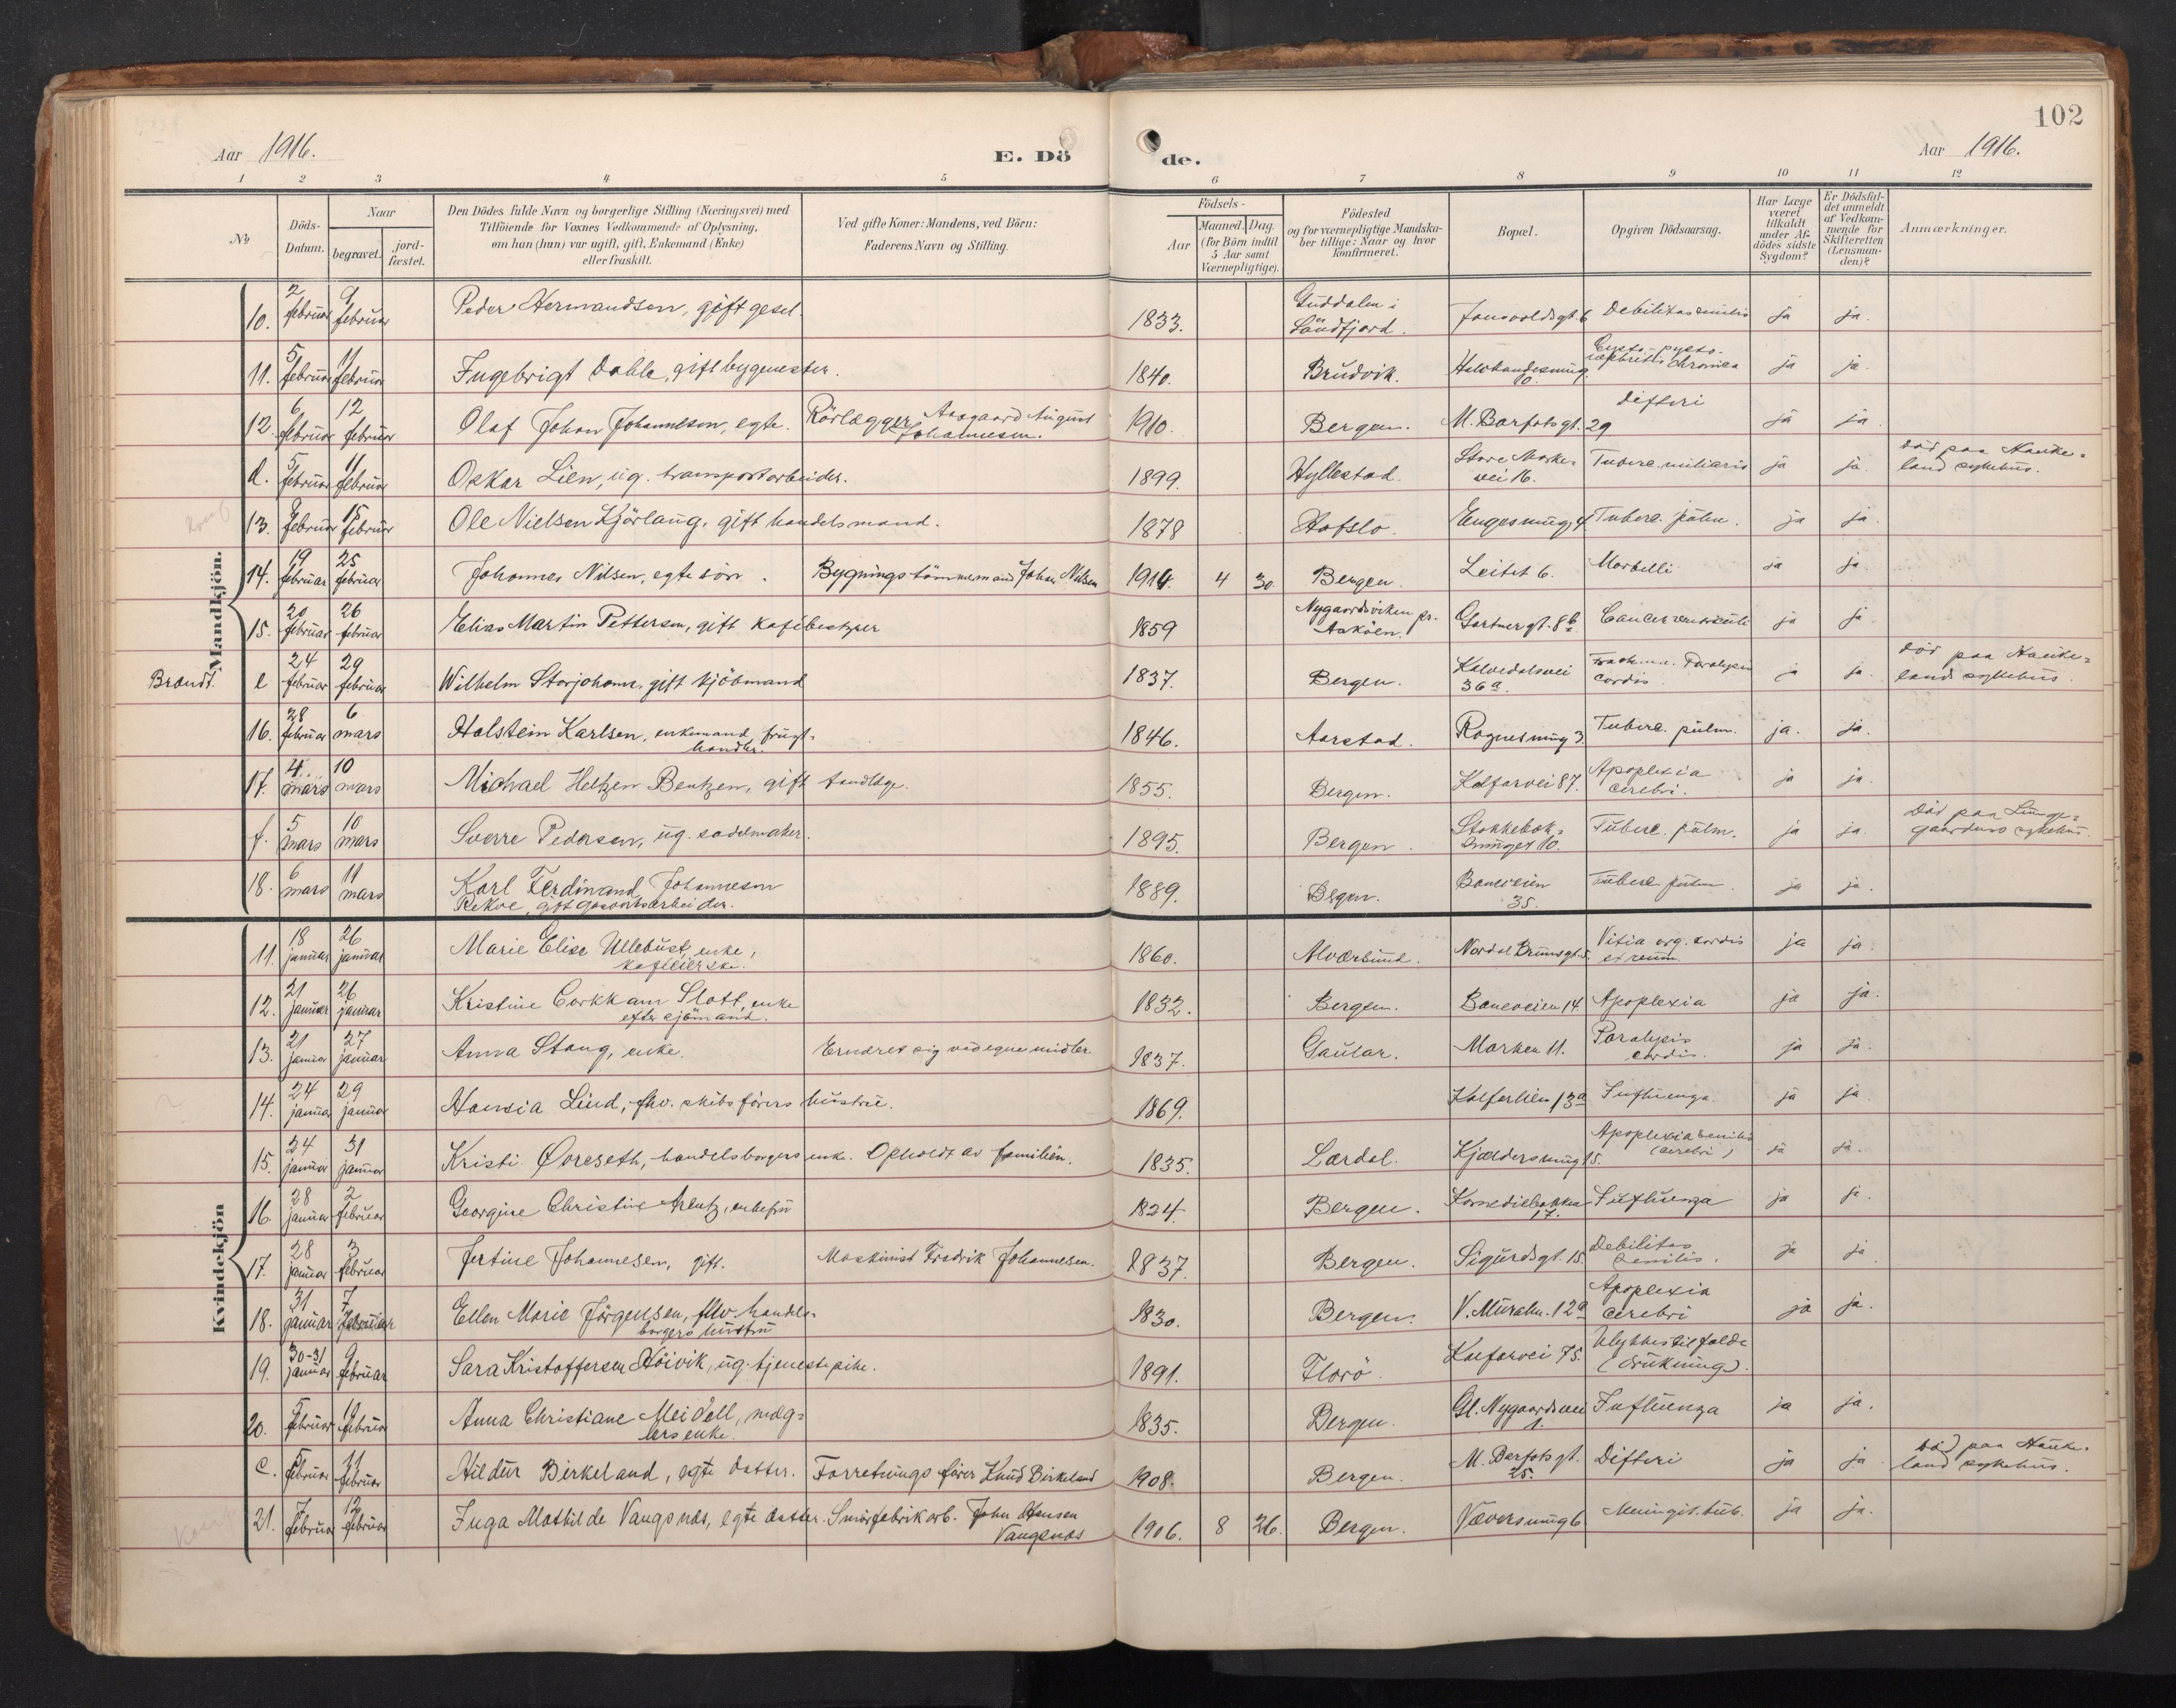 102
Aar 1916.
E. Dö
de.
Aar 1916.
1 2 3 4 5 6 7 8 9 10 11 12
No
Döds-
Datum.
Naar
begravet.
jord-
fæstet.
Den Dödes fulde Navn og borgerlige Stilling (Næringsvei) med
Tilföiende for Voxnes Vedkommende af Oplysning,
om han (hun) var ugift, gift, Enkemand (Enke)
eller fraskilt.
Ved gifte Koner: Mandens, ved Börn:
Faderens Navn og Stilling.
Födsels-
Aar
Maaned. Dag.
(for Börn indtil
5 Aar samt
Værnepligtige).
Födested
og for værnepligtige Mandska-
ber tillige: Naar og hvor
konfirmeret.
Bopæl.
Opgiven Dödsaarsag.
Har Læge
været
tilkaldt
under Af-
dödes sidste
Sygdom?
Er Dödsfal-
det anmeldt
af Vedkom-
mende for
Skifteretten
(Lensman-
den)?
Anmærkninger.
Mandkjön.
10. 2 februar 9 februar Peder Hermandsen, gift gesel. 1833. Guddalen i Söndfjord. 6 Debilitas senilis ja ja.
11. 5 februar 11 februar Ingebrigt Dahle, gift bygmester. 1840. Brudvik. 10. chronica ja ja.
12. 6 februar 12 februar Olaf Johan Johannesen, egte. Rörlægger Aasgaard August Johannesen. 1910. Bergen. M. Barfotsgt. 29 difteri ja ja.
d. 5 februar 11 februar Oskar Lien, ug. transportarbeider. 1899. Hyllestad. Store Markevei 16. Tuberc. miliaris ja ja. död paa Haukeland sykehus.
13. 8 februar 15 februar Ole Nielsen Kjörlaug, gift handelsmand. 1878 Hafslo. Engesmug, 4 Tuberc. pulm. ja ja.
14. 19 februar 25 februar Johannes Nilsen, egte sön. Bygningstömmermand Johan Nilsen 1914 4 30 Bergen. Leitet 6. Morbilli ja ja.
15. 20 februar 26 februar Elias Martin Pettersen, gift kafébestyrer 1859 Nygaardsviken pr. Askøen. Gartnergt. 8b. Cancer ventriculi ja ja.
Brandt. e 24 februar 29 februar Wilhelm Storjohann, gift kjöbmand 1837. Bergen. Kalvedalsvei 36a. Paralysis cordis ja ja. död paa Haukelands sykehus.
16. 28 februar 6 mars Halstein Karlsen, enkemand, frugthandler. 1846. Aarstad. Rognesmug 3. Tuberc. pulm. ja. ja.
17. 4. mars 10 mars Michael Heltzen Bentzen, gift tandlæge. 1855. Bergen. Kalfarvei 87. Apoplexia cerebri. ja ja.
f. 5 mars 10 mars Sverre Pedersen, ug. sadelmaker. 1895. Bergen. 10. Tuberc. pulm. ja ja. Död paa Lungegaardens sykehus.
18. 6 mars 11 mars Karl Ferdinand Johannesen Rekve, gift gasverksarbeider. 1889. Bergen. Baneveien 35. Tuberc. pulm. ja ja.
Kvindekjön
11. 18 januar 26 januar Marie Elise Ullebust, enke, 1860. Alversund. Nordal Brunsgt. 5. Vitia org. cordis et renum ja ja.
12. 21 januar 26 januar Kristine Slott, enke efter sjömand. 1832. Bergen. Baneveien 14. Apoplexia ja ja.
13. 21 januar 27 januar Anna Stang, enke. Ernæret sig ved egne midler. 1837. Gaular. Marken 11. Paralysis cordis. ja ja.
14. 24 januar 29 januar Hansia Lind, fhv. skibsförers hustru. 1869. Kalfarlien 13a Influenza. ja ja.
15. 24 januar 31 januar Kristi Øvreseth, handelsborgers enke. Opholdt av familien. 1835. Lærdal. 15. Apoplexia senilis (cerebri) ja ja.
16. 28 januar 2 februar Georgine Christine Arentz, enkefru 1824. Bergen. Komediebakken 17. Influenza ja ja.
17. 28 januar 3 februar Jertine Johannesen, gift. Maskinist Fredrik Johannessen. 1837. Bergen. Sigurdsgt. 15. Debilitas senilis. ja ja
18. 31 januar 7 februar Ellen Marie Jörgensen, fhv. handelsborgers hustru 1830. Bergen. V. Muralm. 12a Apoplexia cerebri ja ja.
19. 30-31 januar 9 februar Sara Kristoffersen Höivik, ug. tjenestepike. 1891. Florö. Kalfarvei 75. Ulykkestilfælde (drukning).
20. 5 februar 10 februar Anna Christiane Meidell, mæglers enke. 1835. Bergen. Gl. Nygaardsvei 1. Influenza ja ja.
c. 5 februar 11 februar Hildur Birkeland, egte datter. Forretningsförer Knud Birkeland 1908. Bergen. M. Barfotsgt. 25. Difteri ja ja. död paa Haukeland sykehus.
21. 7 februar 12 februar Inga Mathilde Vangsnæs, egte datter. Smörfabrikarb. John Hansen Vangsnæs 1906. 8 26. Bergen. Væversmug 6 Meningit. tub. ja ja.